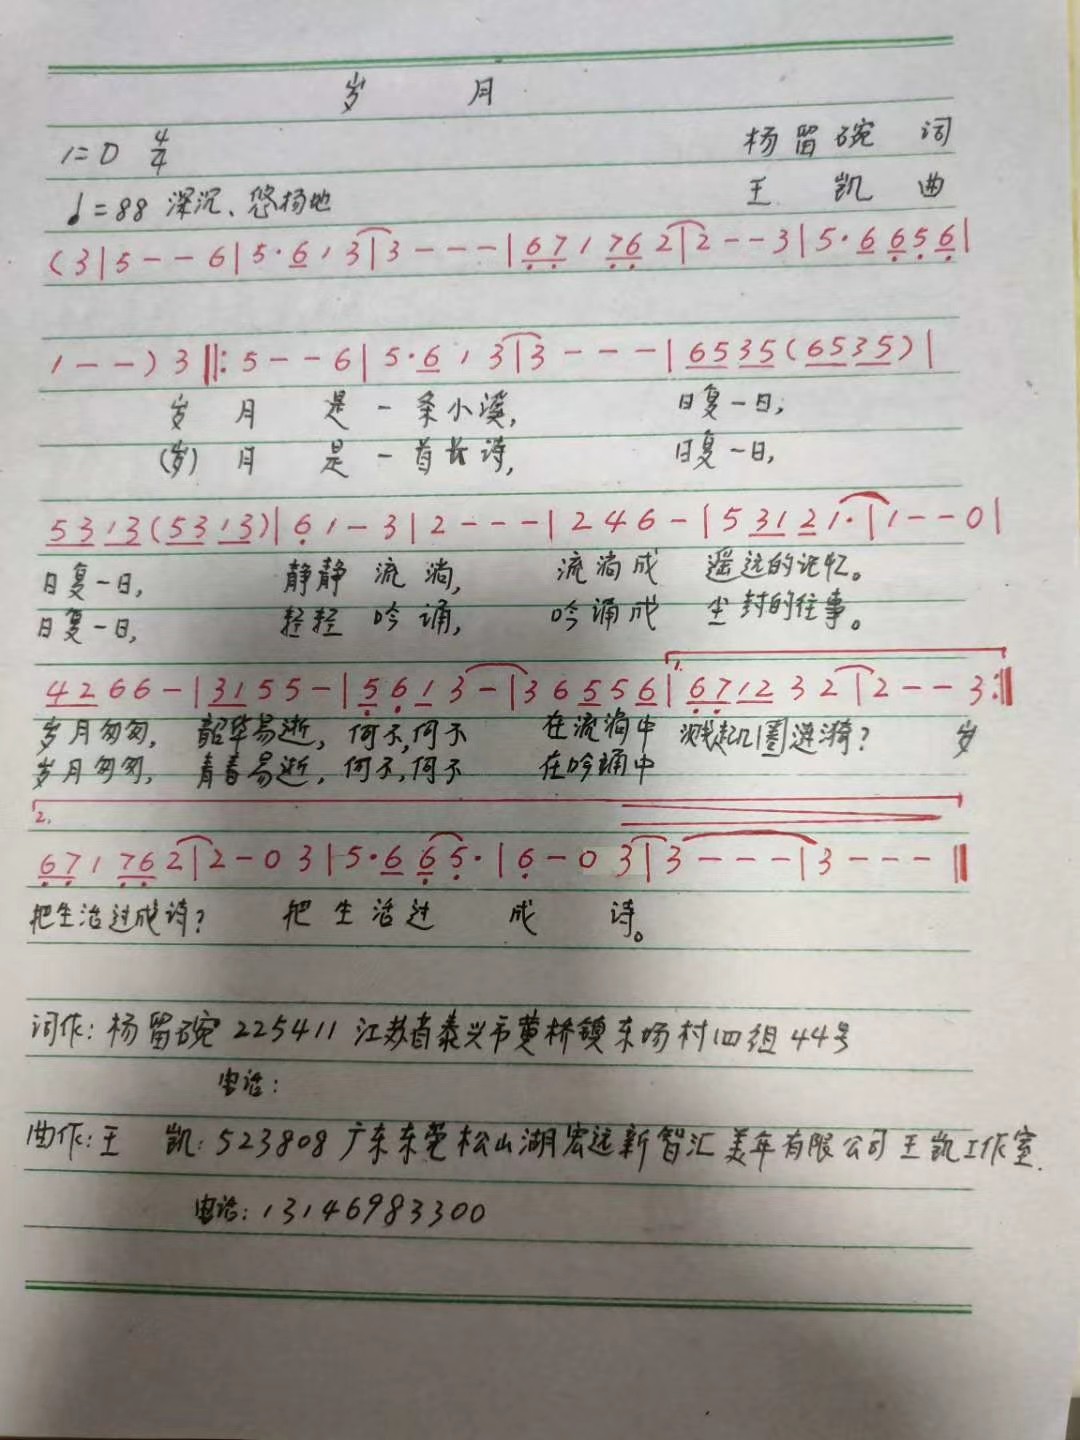 岁 月
1=D 4/4
杨留碗 词
♩=88 深沉、悠扬地
王 凯 曲
(3|5--6|5·6 1 3|3---|67 1 76 2|2--3|5·6 656|
1--)3‖:5--6|5·6 1 3|3---|6535(6535)|
岁 月 是 一 条小溪, 日复一日,
(岁) 月 是 一 首长诗, 日复一日,
5313(5313)|6 1-3|2---|2 4 6-|5 3121·|1--0|
日复一日, 静静 流 淌, 流淌成 遥远的记忆。
日复一日, 轻轻 吟 诵, 吟诵成 尘封的往事。
1.
4266-|3155-|5613-|36556|6712 3 2|2--3:‖
岁月匆匆, 韶华易逝, 何不,何不 在流淌中 溅起几圈涟漪? 岁
岁月匆匆, 青春易逝, 何不,何不 在吟诵中
2.
67 1 76 2|2-0 3|5·6 6 5·|6-0 3|3---|3---‖
把生活过成诗? 把 生 活 过 成 诗。
词作: 杨留碗 225411 江苏省泰兴市黄桥镇东场村四组44号
电话:
曲作: 王 凯: 523808 广东东莞松山湖宏远新智汇美年有限公司王凯工作室.
电话: 13146983300